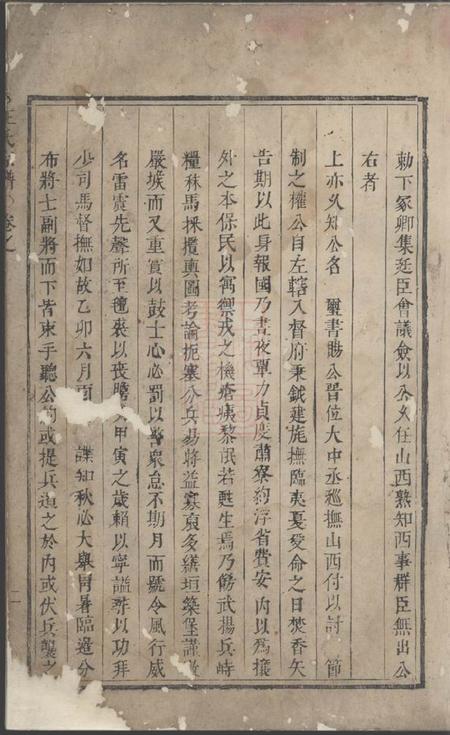 勅下冢卿集廷臣會議僉以公久任山西熟知西事群臣無出公
右者
上亦久知公名 璽書賜公晉位大中丞廵撫山西付以討 節
制之權公自左轄入督府秉鉞建旄撫臨夷夏受命之日焚香矢
告期以此身報國乃晝夜單力貞度肅寮約浮省費安内以為攘
外之本保民以寓禦戎之機瘡痍黎氓若甦生焉乃傷武揚兵峙
糧秣馬採攬輿圖考論扼塞分兵易將益寡裒多繕垣築堡謹
嚴堠而又重賞以鼓士心必罰以警衆怠不期月而號令風行威
名雷震先聲所至氊裘以喪膽 甲寅之歲賴以寧謐誶以功拜
少司馬督撫如故乙卯六月 諜知秋必大舉冐暑臨邉分
布將士副將而下皆束手聽公 或提兵 之於内或伏兵襲之
卷之
一